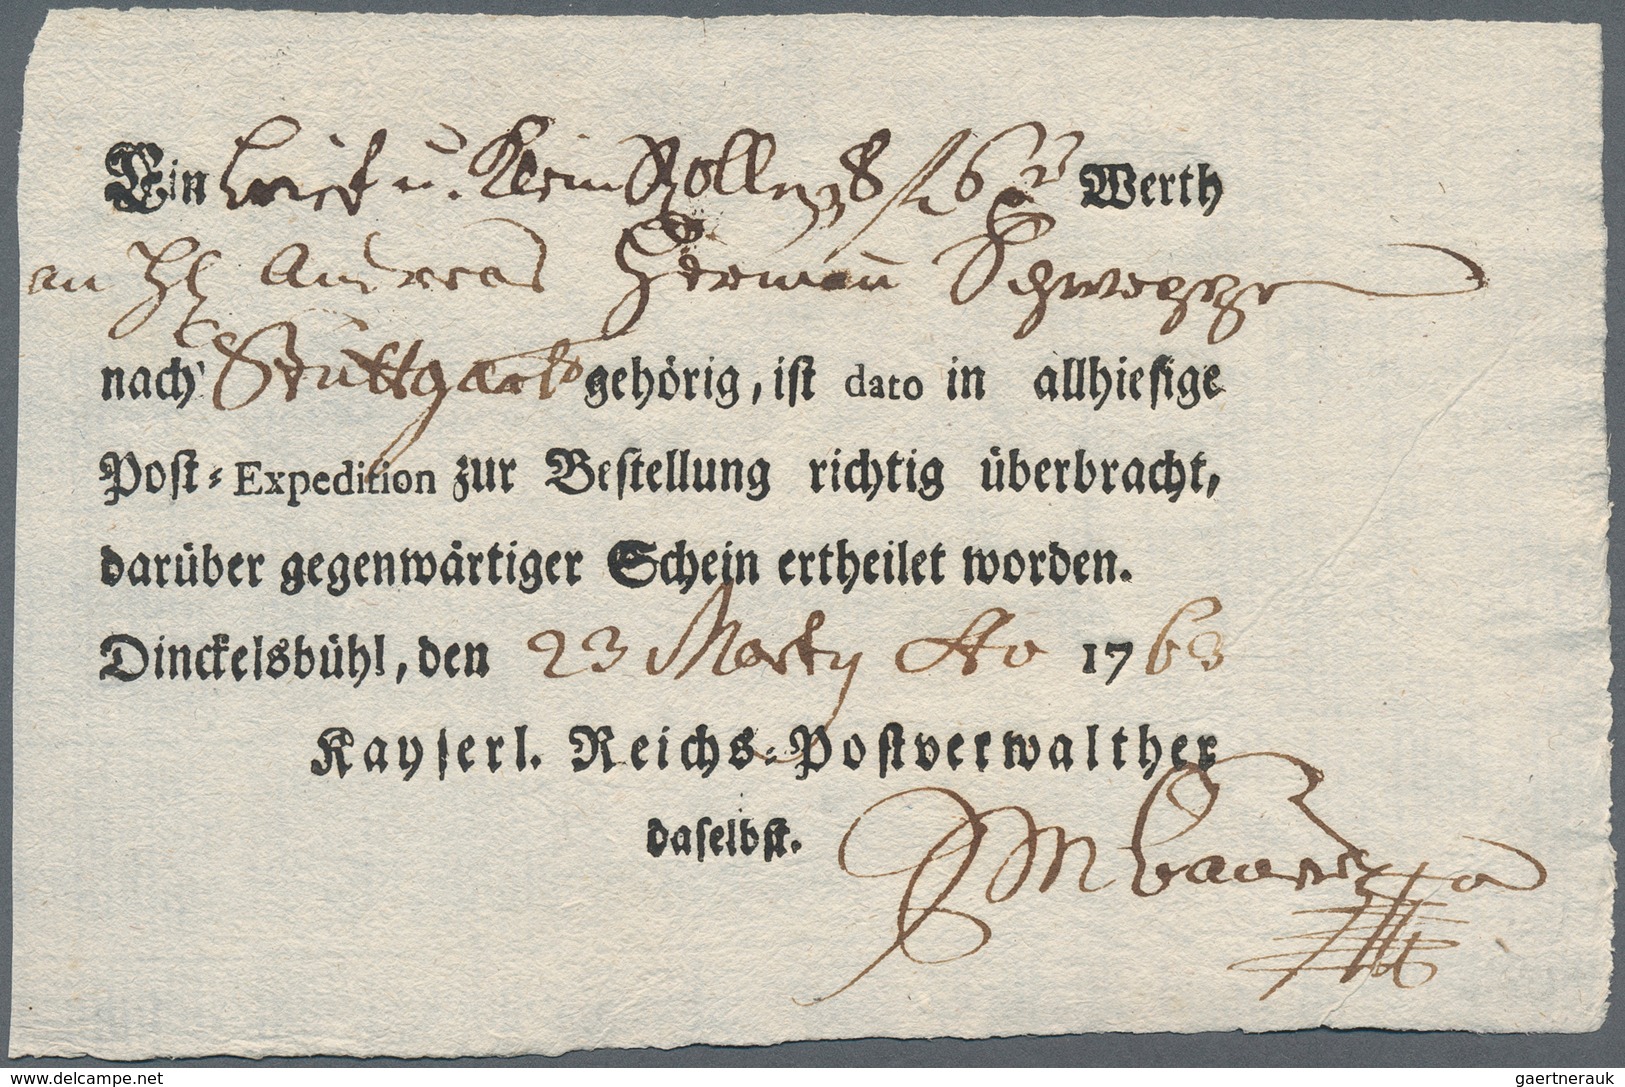 Ein brief u. klein Rollen Werth
an H. Andreas Herman Schweppe
nach Stuttgart gehörig, iſt dato in allhieſige
Poſt-Expedition zur Beſtellung richtig überbracht,
darüber gegenwärtiger Schein ertheilet worden.
Dinckelsbühl, den 23 Marty Ao 1763
Kayſerl. Reichs-Poſtverwalther
daſelbſt.
www.delcampe.net
gaertnerauk